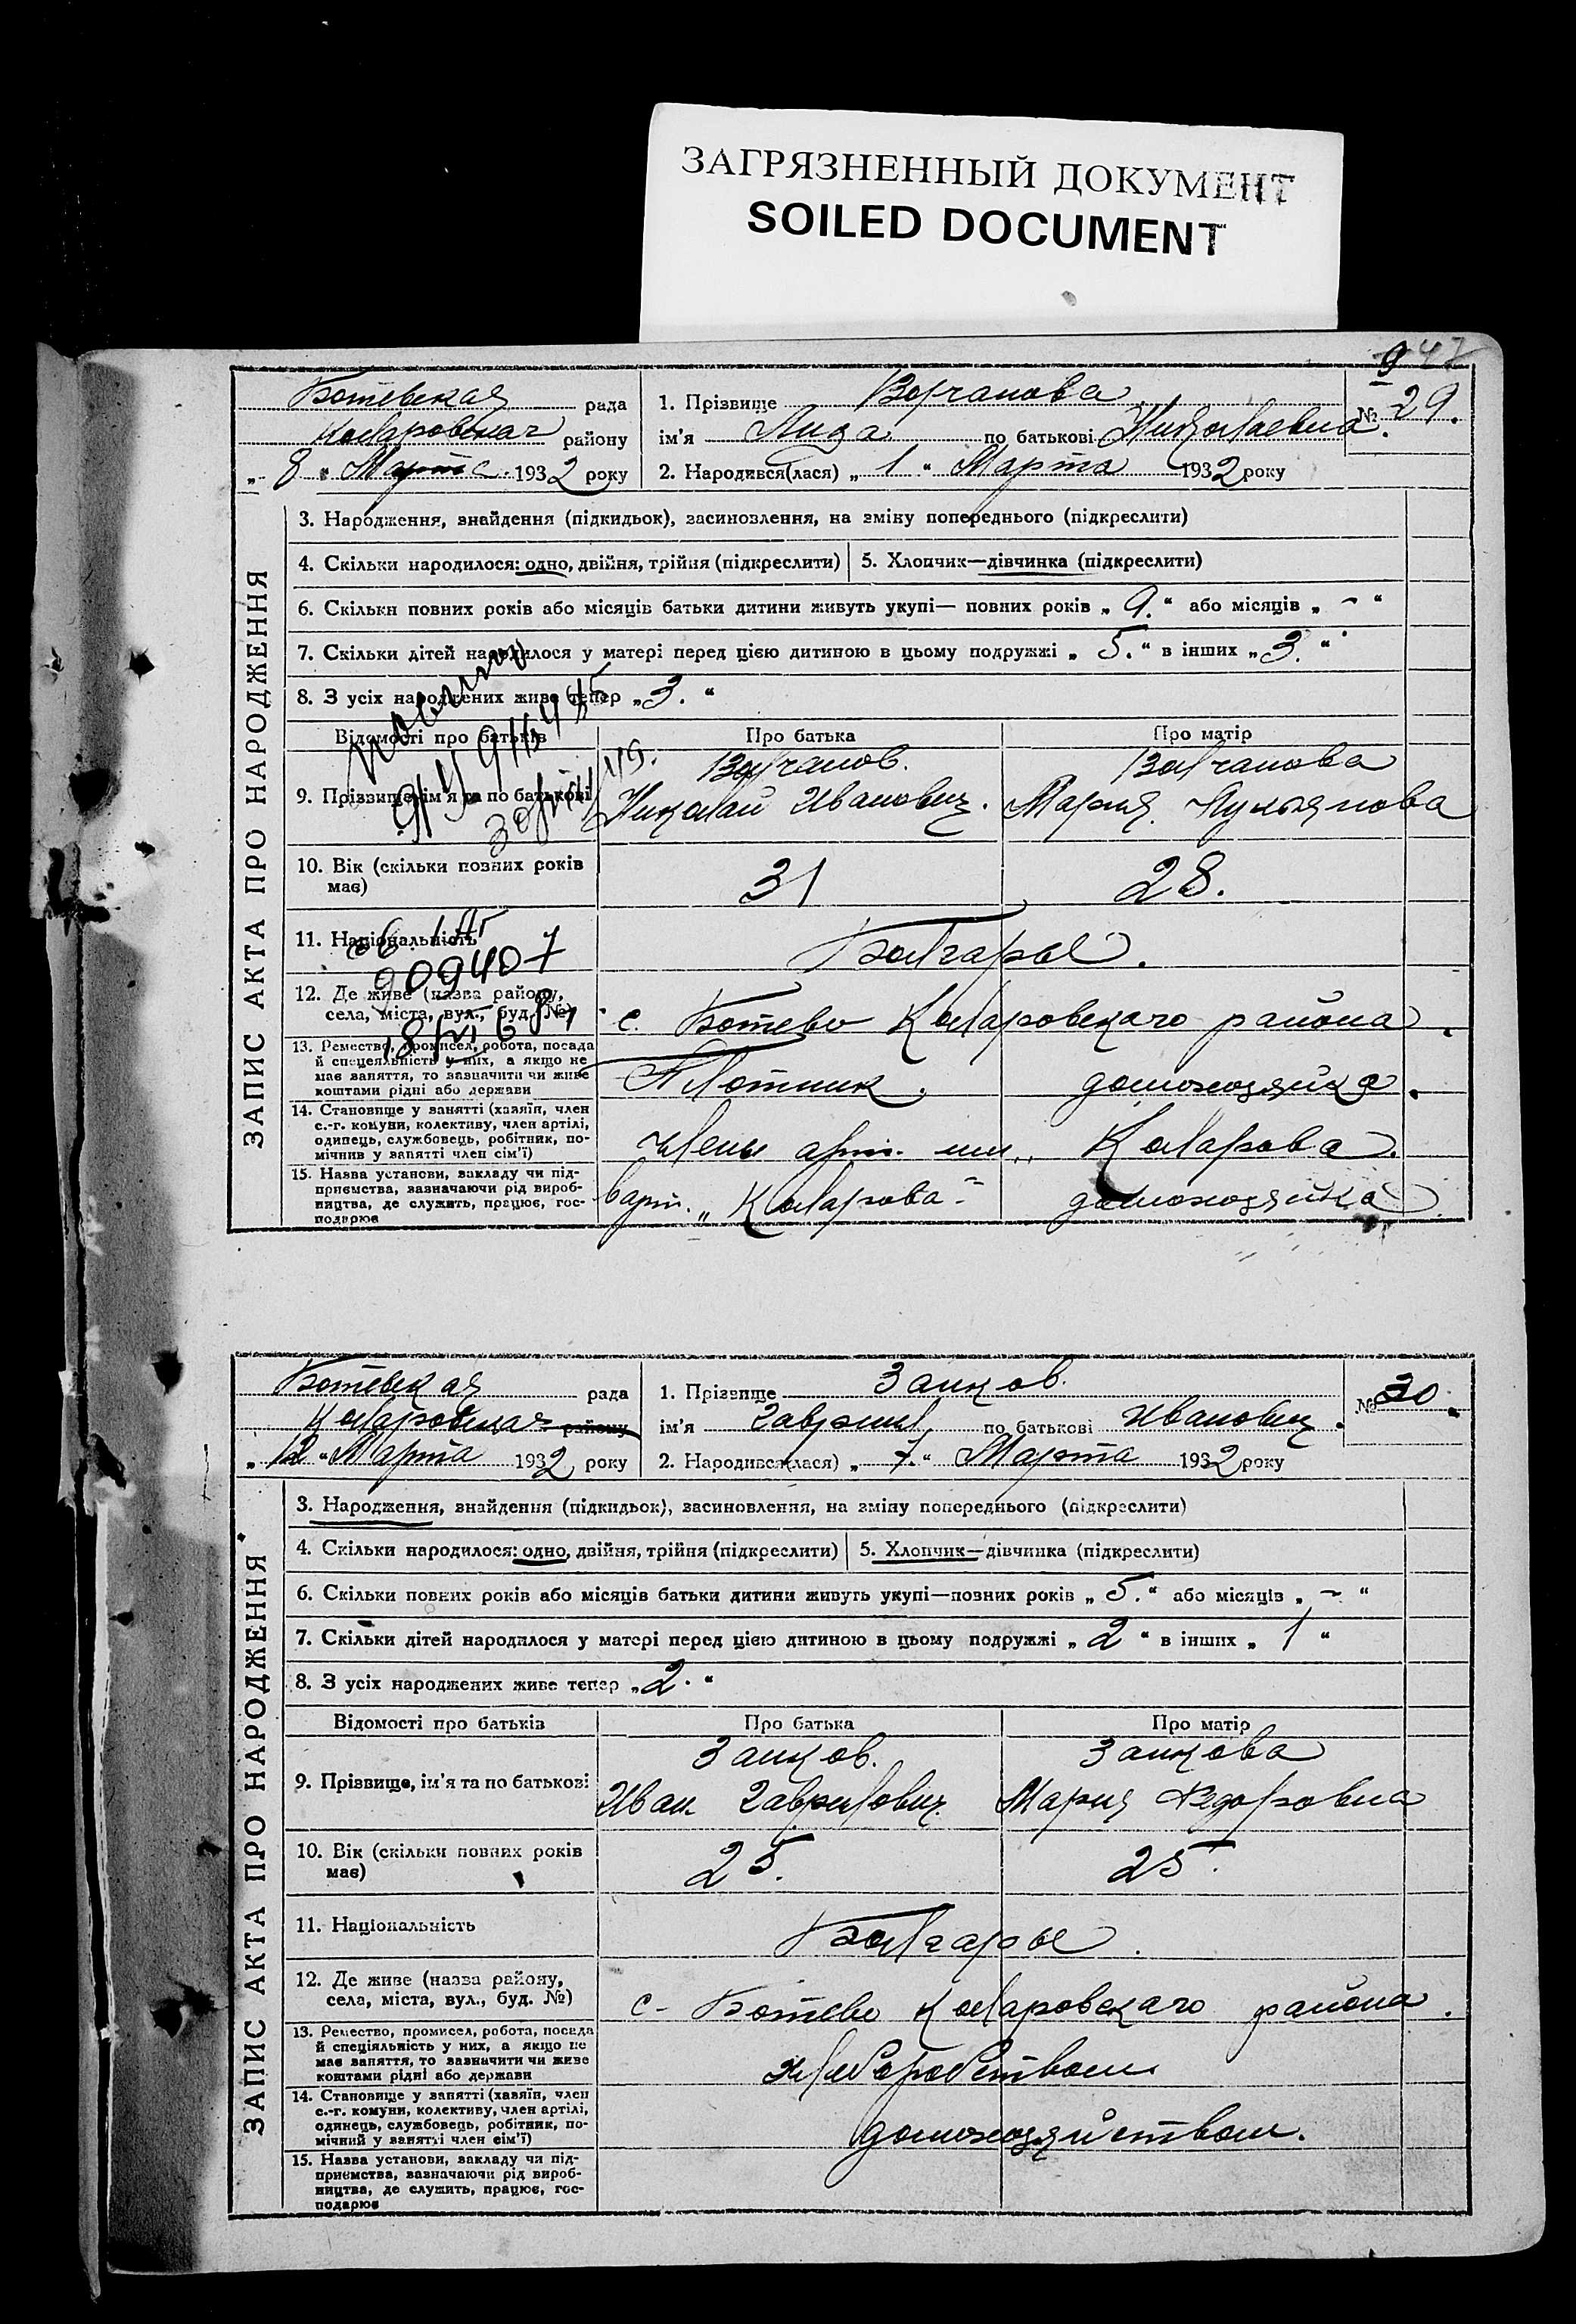 ЗАГРЯЗНЕННЫЙ ДОКУМЕНТ
SOILED DOCUMENT
9 47
Ботевская рада
Коларовская району
„ 8 " Марта 1932 року
1. Прізвище Волчанова
ім'я Лида по батькові Николаевна.
2. Народився(лася) „ 1 " Марта 1932 року
№ 29.
ЗАПИС АКТА ПРО НАРОДЖЕННЯ
3. Народження, знайдення (підкидьок), засиновлення, на зміну попереднього (підкреслити)
4. Скільки народилося: одно, двійня, трійня (підкреслити)
5. Хлопчик—дівчинка (підкреслити)
6. Скільки повних років або місяців батьки дитини живуть укупі— повних років „ 9. " або місяців „ - "
7. Скільки дітей народилося у матері перед цією дитиною в цьому подружжі „ 5. " в інших „ 3. "
8. З усіх народжених живе тепер „ 3. "
Відомості про батьків
Про батька
Про матір
9. Прізвище, ім'я та по батькові
Волчанов.
Николай Иванович.
Волчанова
Мария
10. Вік (скільки повних років
має)
31
28.
11. Національність
Болгары.
909407
12. Де живе (назва району,
села, міста, вул., буд. №)
с. Ботево Коларовского района.
13. Ремество, промисел, робота, посада
й спецеяльність у них, а якщо не
має заняття, то зазначити чи живе
коштами рідні або держави
Плотник.
домохозяйка.
14. Становище у занятті (хазяїн, член
с.-г. комуни, колективу, член артілі,
одинець, службовець, робітник, по-
мічник у занятті член сім'ї)
члены арт. им. Коларова.
15. Назва установи, закладу чи під-
приємства, зазначаючи рід вироб-
ництва, де служить, працює, гос-
подарює
в арт. „Коларова"
домохозяйка
Ботевская рада
Коларовская району
„ 12 " Марта 1932 року
1. Прізвище Занков.
ім'я Гавриил по батькові Иванович.
2. Народився(лася) „ 7. " Марта 1932 року
№ 30.
ЗАПИС АКТА ПРО НАРОДЖЕННЯ
3. Народження, знайдення (підкидьок), засиновлення, на зміну попереднього (підкреслити)
4. Скільки народилося: одно, двійня, трійня (підкреслити)
5. Хлопчик—дівчинка (підкреслити)
6. Скільки повних років або місяців батьки дитини живуть укупі—повних років „ 5. " або місяців „ - "
7. Скільки дітей народилося у матері перед цією дитиною в цьому подружжі „ 2 " в інших „ 1 "
8. З усіх народжених живе тепер „ 2. "
Відомості про батьків
Про батька
Про матір
9. Прізвище, ім'я та по батькові
Занков.
Иван Гаврилович.
Занкова
Мария Федоровна
10. Вік (скільки повних років
має)
25.
25.
11. Національність
Болгары.
12. Де живе (назва району,
села, міста, вул., буд. №)
с- Ботево Коларовского района.
13. Ремество, промисел, робота, посада
й спеціяльність у них, а якщо не
має заняття, то зазначити чи живе
коштами рідні або держави
хлеборобством
14. Становище у занятті (хазяїн, член
с.-г. комуни, колективу, член артілі,
одинець, службовець, робітник, по-
мічний у занятті член сім'ї)
домохозяйством.
15. Назва установи, закладу чи під-
приємства, зазначаючи рід вироб-
ництва, де служить, працює, гос-
подарює